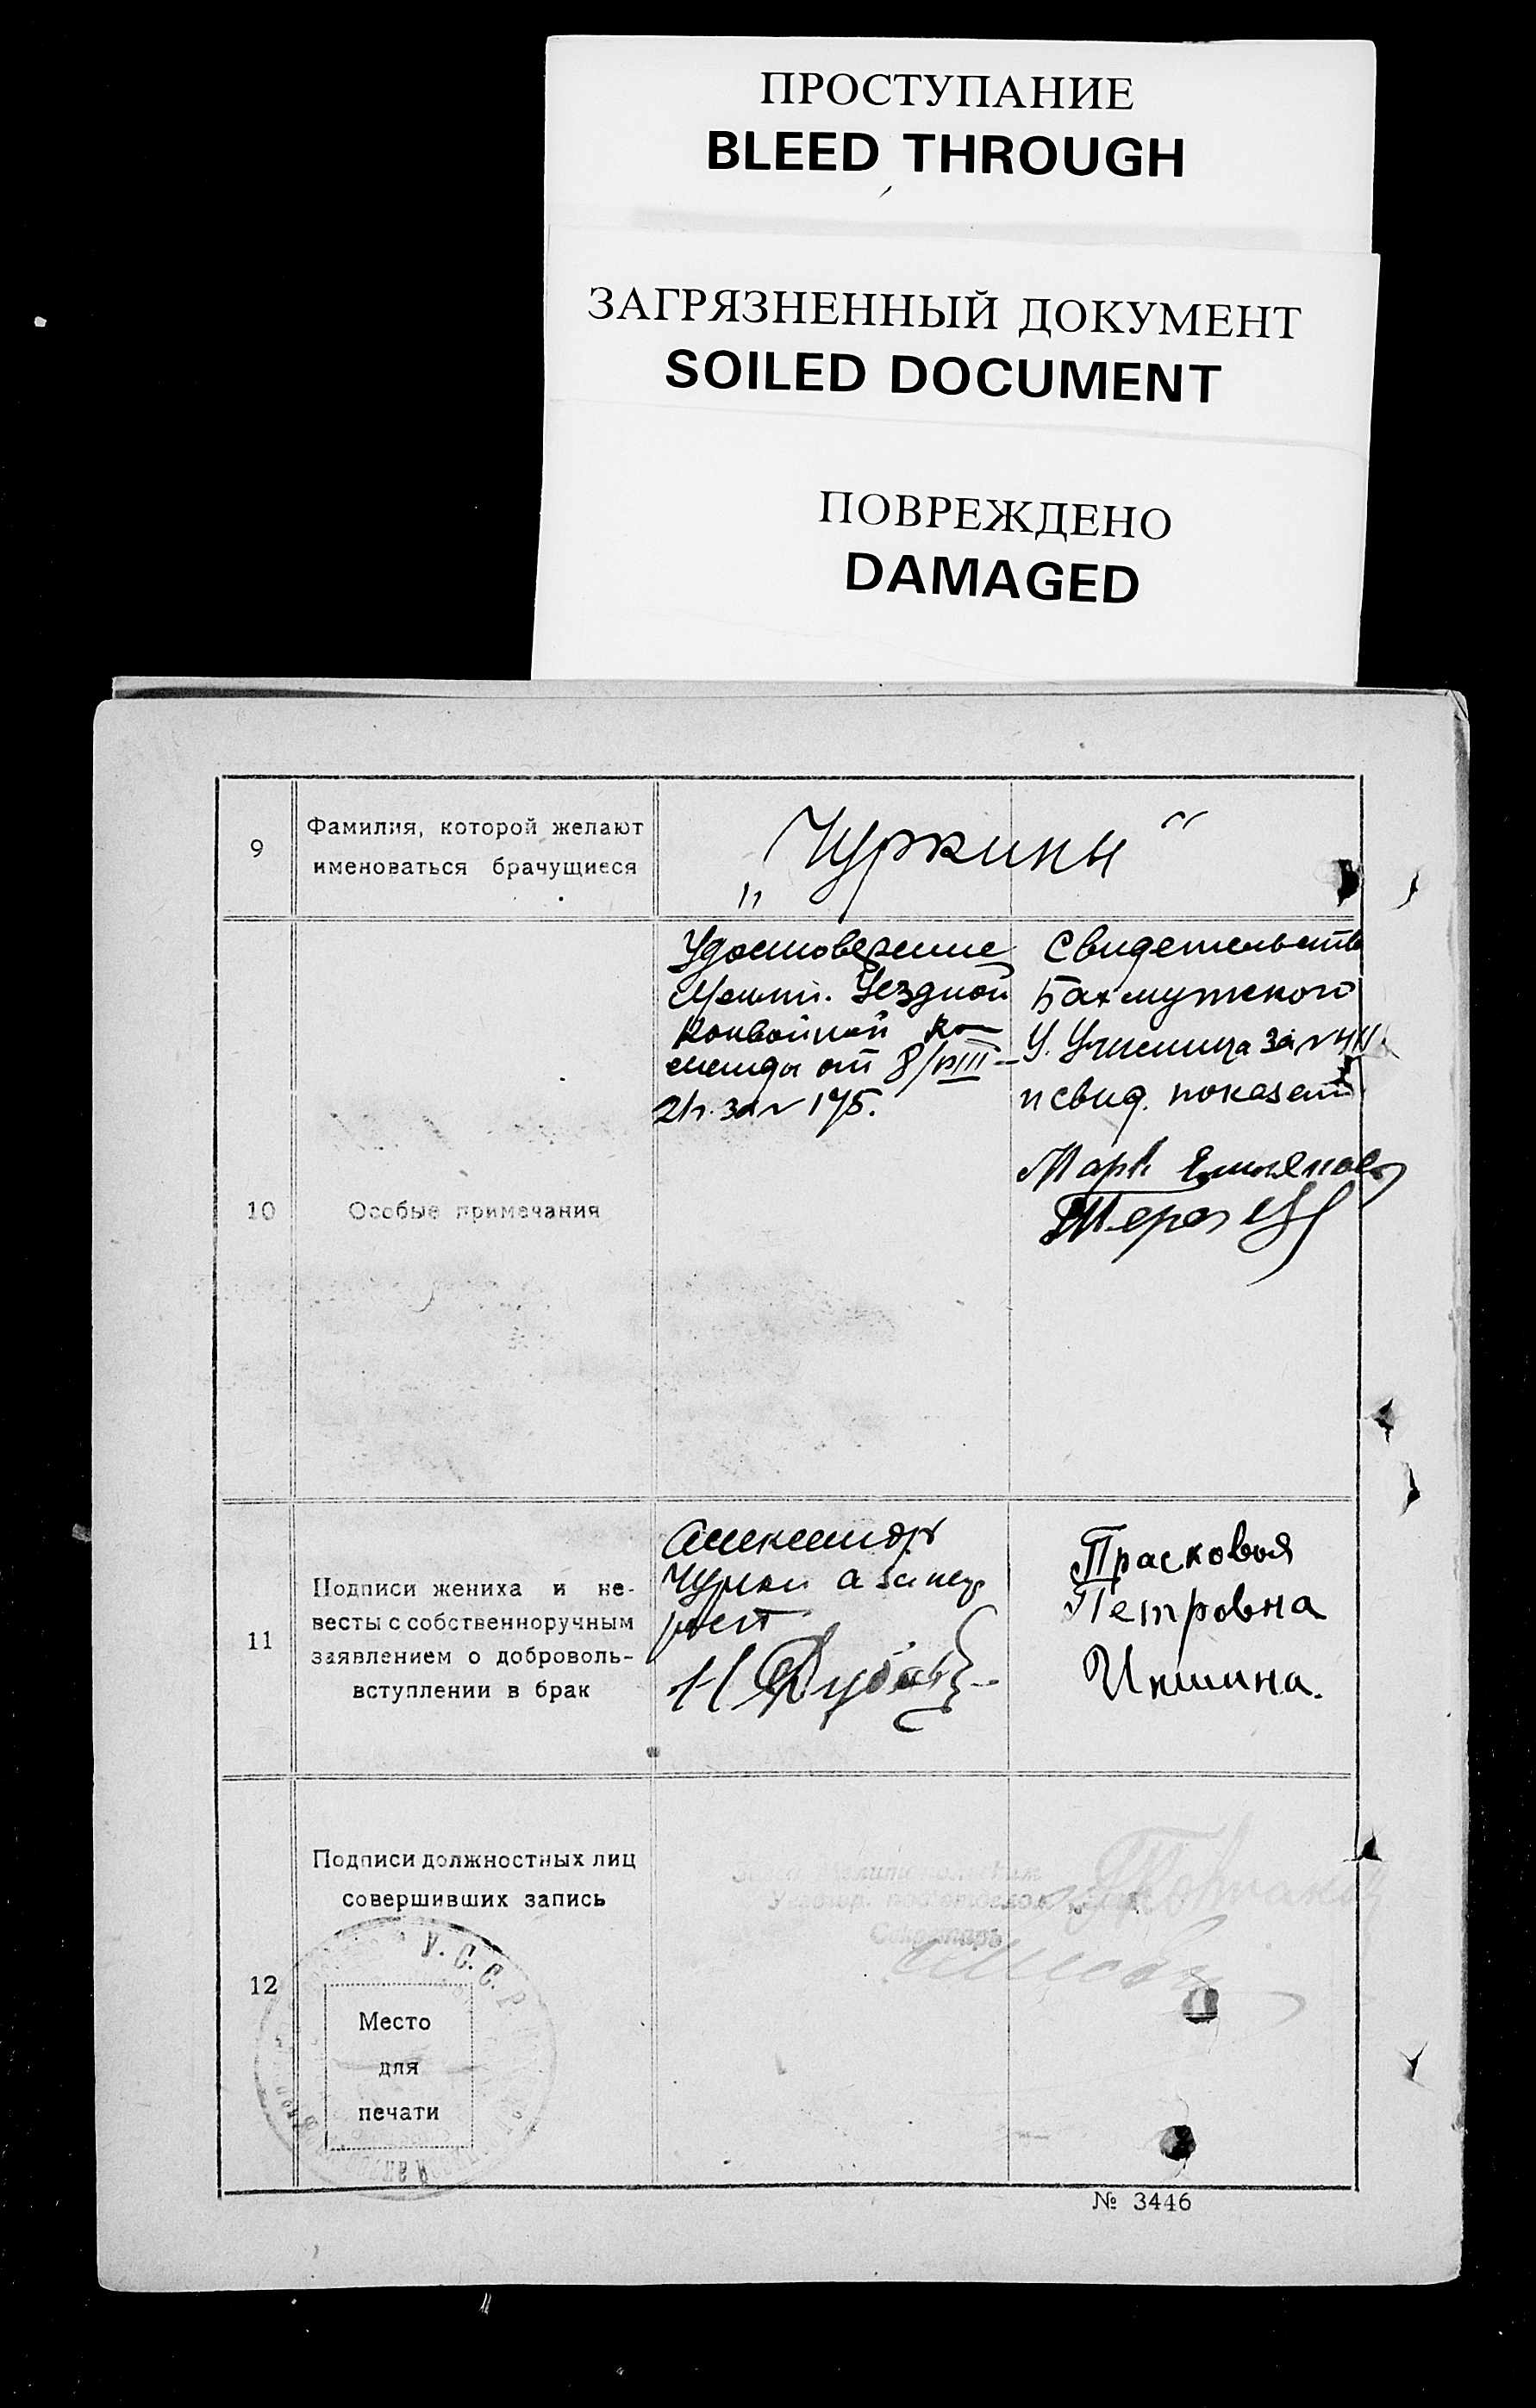 ПРОСТУПАНИЕ
BLEED THROUGH
ЗАГРЯЗНЕННЫЙ ДОКУМЕНТ
SOILED DOCUMENT
ПОВРЕЖДЕНО
DAMAGED
9
Фамилия, которой желают
именоваться брачущиеся
„Чуркины“
10
Особые примечания
Удостоверение
Уездной
Конвойной ко-
манды от 8/VIII-
21г. за № 175.
Свидетельств
Бахмутского
У. Училища за №
и свид. показат
Марк
11
Подписи жениха и не-
весты с собственноручным
заявлением о доброволь-
вступлении в брак
Александр
Чуркин а за негр
Прасковья
Петровна
Икшина.
12
Подписи должностных лиц
совершивших запись
У.С.С.Р.
Место
для
печати
Секретарь
№ 3446